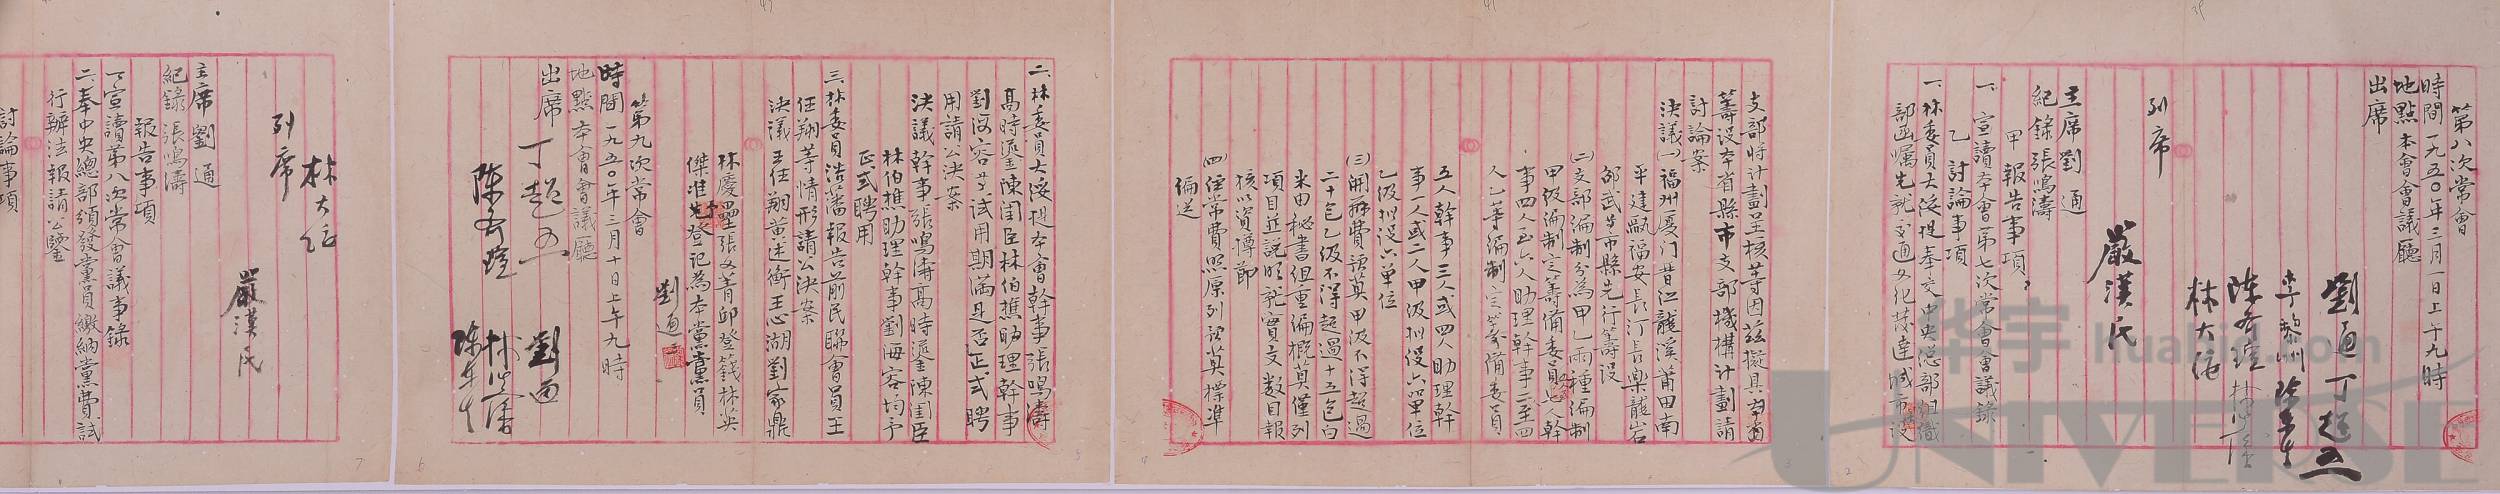 第八次常會
時間 一九五〇年三月一日上午九時
地點 本會會議廳
出席
劉通 丁超五
李黎洲
陳矞瑄
林大
列席
嚴漢民
主席 劉通
紀錄 張鳴濤
甲 報告事項
乙 討論事項
一、宣讀本會第七次常會會議錄
一、林委員大 提奉交中央总部組織
部函嘱先就交通文化發達城市設
支部將計劃呈核等因茲擬具
籌設本省縣市支部機構計劃請
討論案
決議(一)福州厦门晋江龍溪莆田南
平建甌福安長汀長樂龍岩
邵武等市縣先行籌設
(二)支部編制分為甲乙兩種編制
甲級編制定籌備委員七人幹
事四人至六人助理幹事二至四
人乙等編制定籌備委員
五人幹事三人或四人助理幹
事一人或二人甲級擬設六單位
乙級擬設六單位
(三)開辦費預算甲級不得超過
二十包乙級不得超過十五包白
米由秘書組重編概算僅列
項目並説明就實支数目報
核以資撙節
(四)經常費照原列預算標準
偏迗
二、林委員大 提本會幹事張鳴濤
高時遥陳闺臣林伯樵助理幹事
劉海容等試用期满是否正式聘
用請公決案
決議幹事張鳴濤高時遥陳闺臣
林伯樵助理幹事劉海容均予
正式聘用
三、林委員浩藩報告前民聯會員王
任翔等情形請公決案
決議王任翔黄述衡王心湖劉家鼎
林慶壘張文菁邱登籛林奂
傑准予先登記為本黨黨員
劉通
第九次常會
時間 一九五〇年三月十日上午九時
地點 本會會議廳
出席 丁超五 劉通
陳矞瑄
列席
林大
嚴漢民
主席 劉通
紀錄 張鳴濤
報告事項
一、宣讀第八次常會議事錄
二、奉中央總部頒發黨員繳納黨費試
行辦法報請公鑒
討論事項
華宇 huabid.com
UNIVERSE